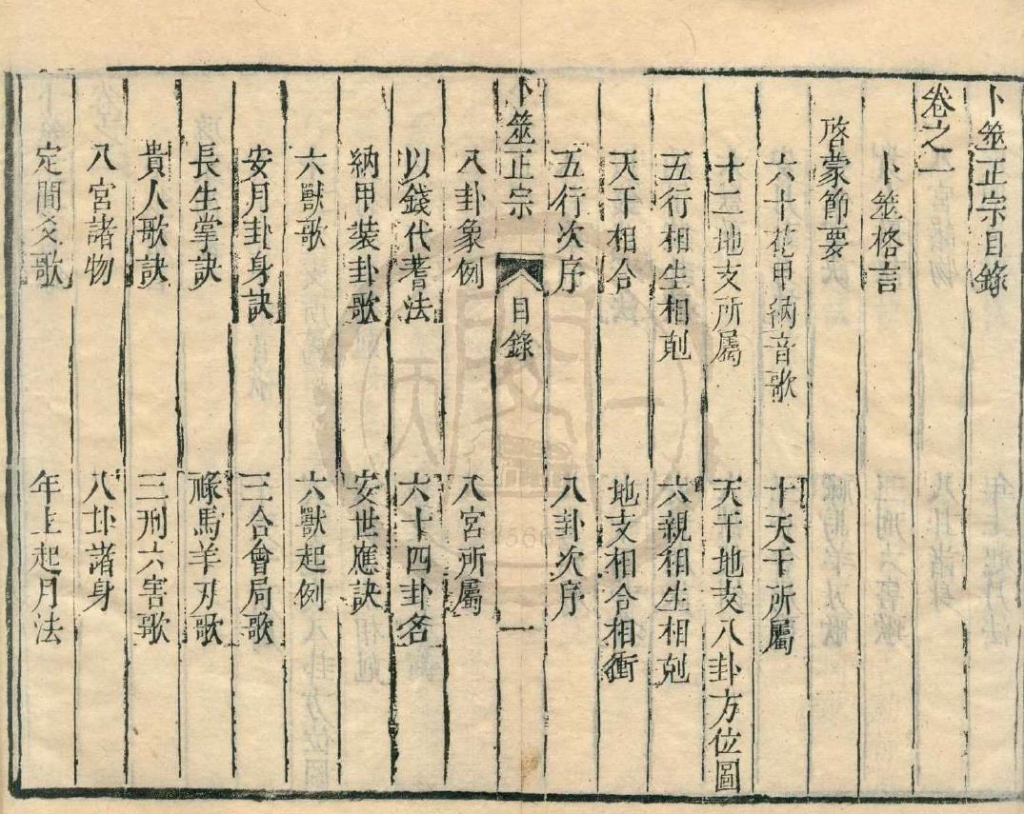 卜筮正宗目錄
卷之一
卜筮格言
啓蒙節要
六十花甲納音歌 十天干所屬
十二地支所屬 天干地支八卦方位圖
五行相生相剋 六親相生相剋
天干相合 地支相合相衝
五行次序 八卦次序
卜筮正宗 目錄 一
八卦象例 八宮所屬
以錢代蓍法 六十四卦名
納甲裝卦歌 安世應訣
六獸歌 六獸起例
安月卦身訣 三合會局歌
長生掌訣 祿馬羊刃歌
貴人歌訣 三刑六害歌
八宮諸物 八卦諸身
定間爻歌 年上起月法